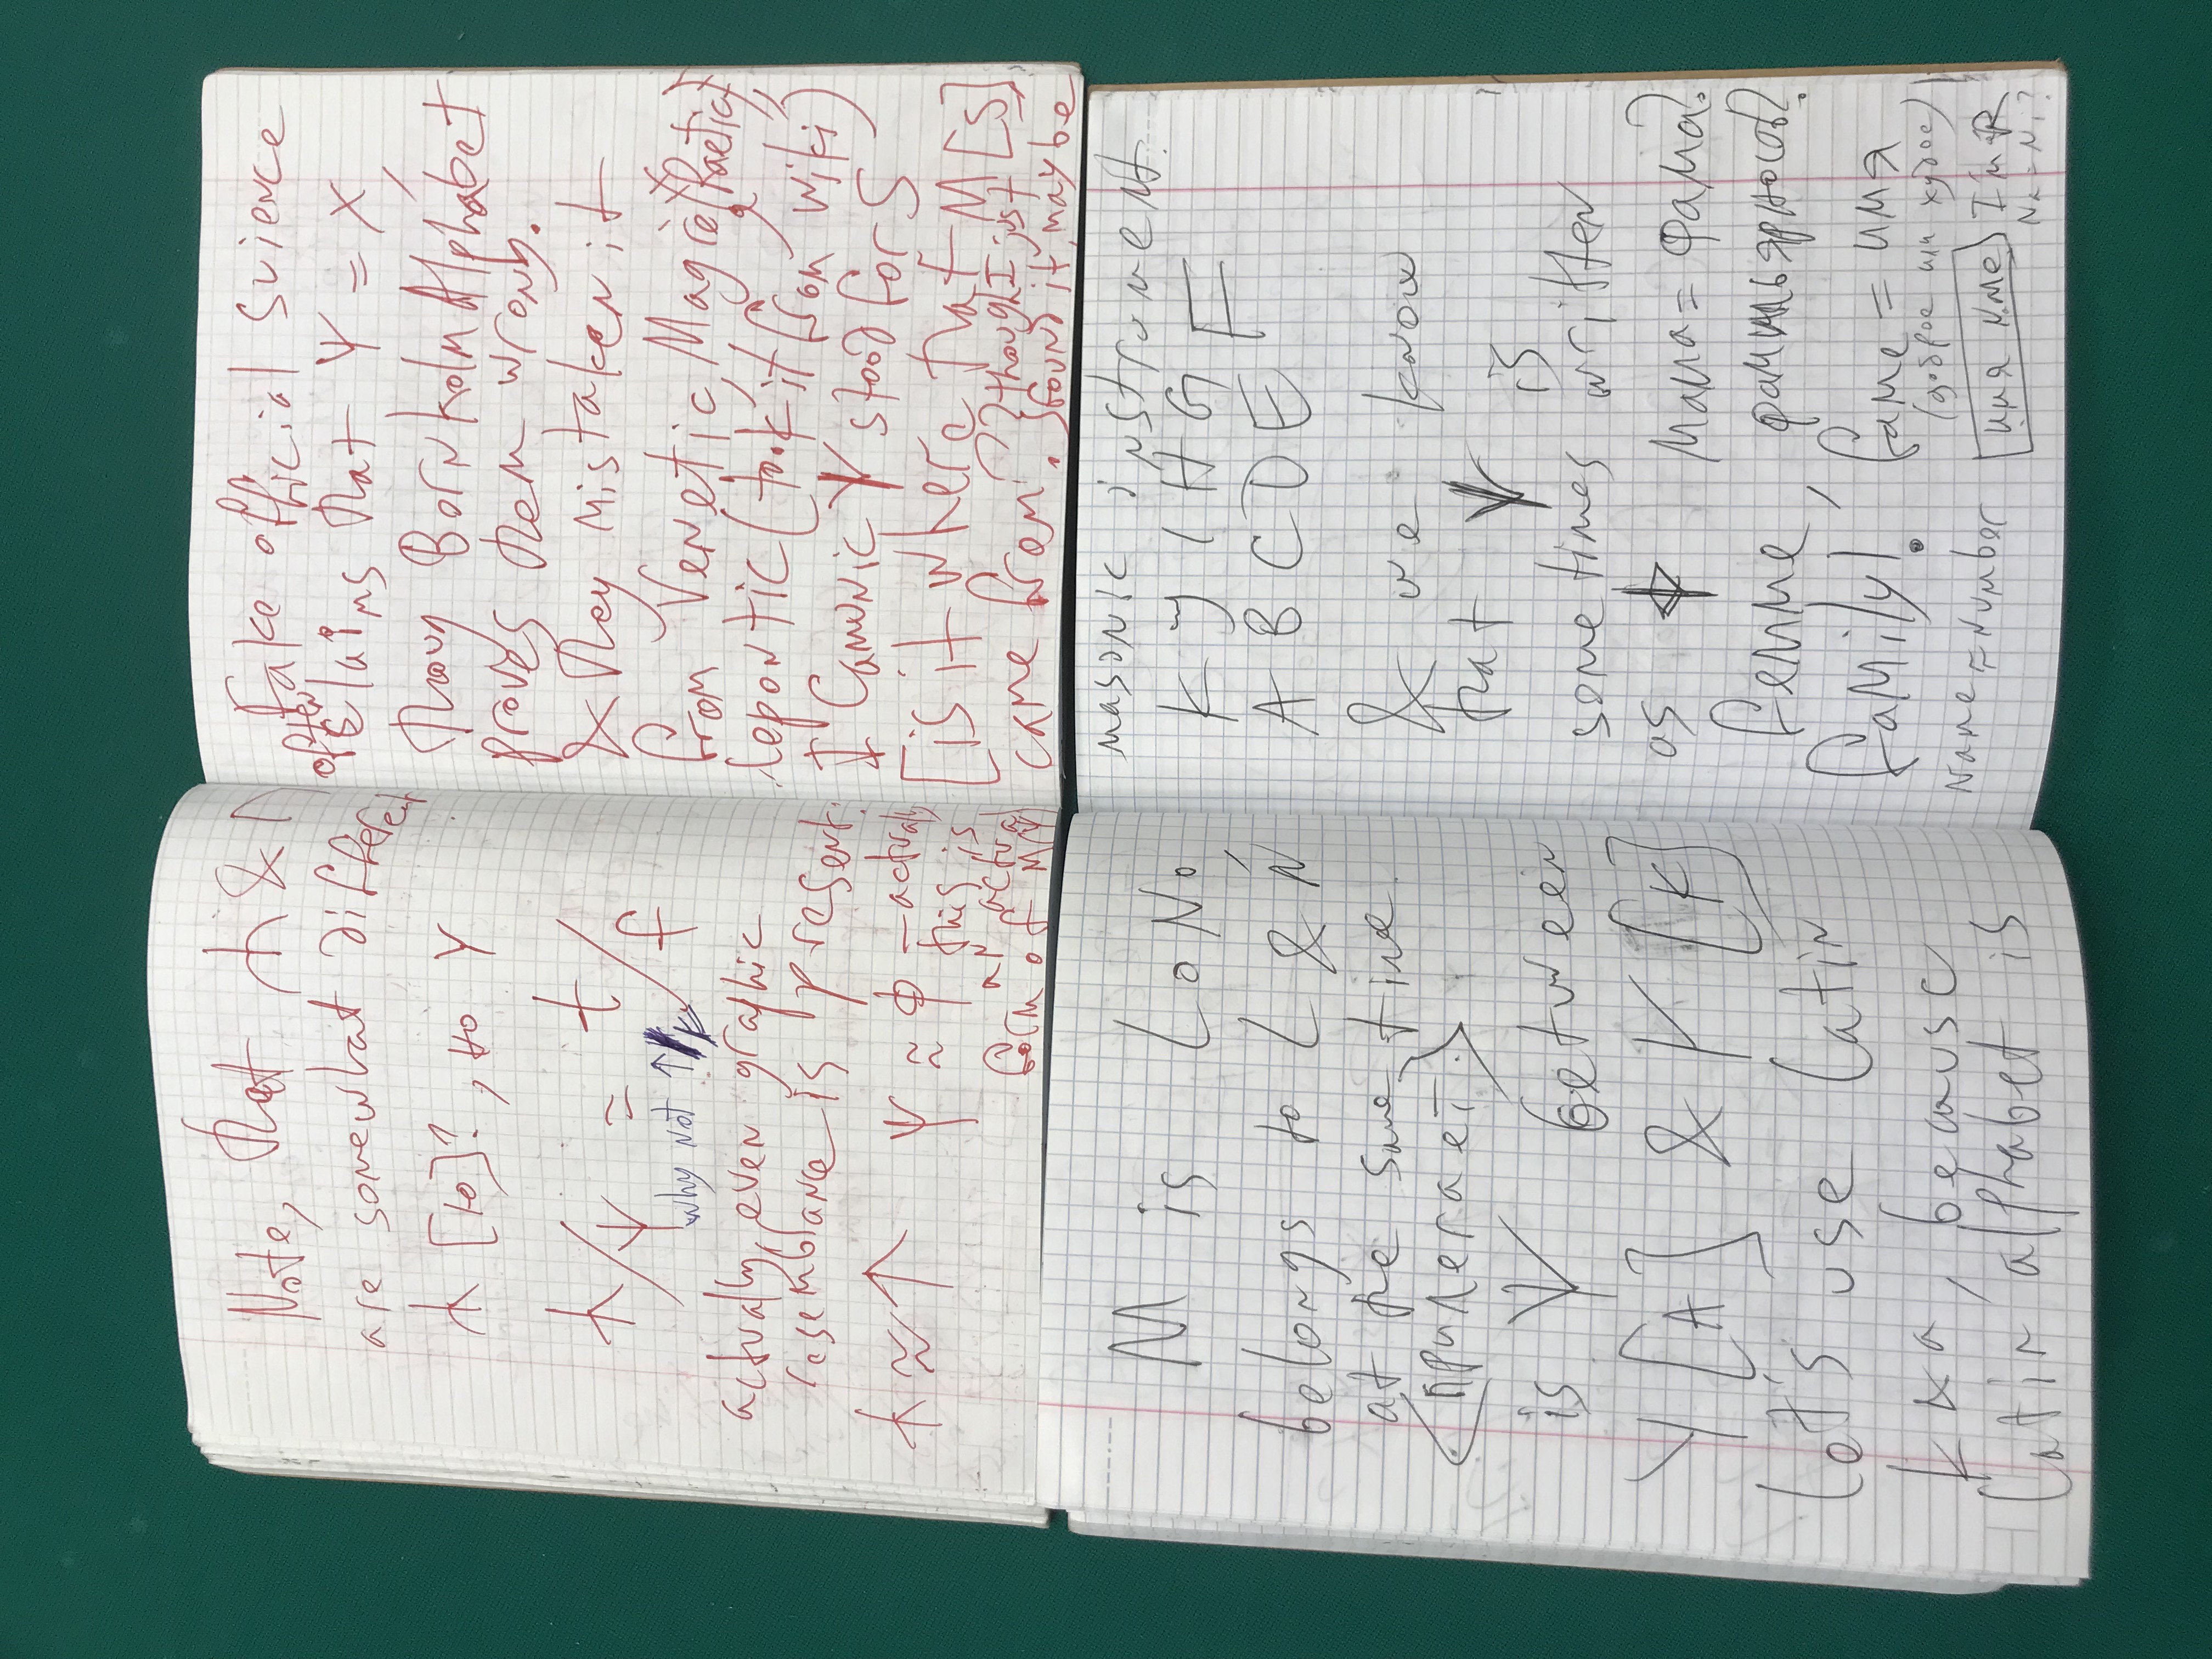 Note, that ⋔ & Π
are somewhat different
⋏ [to]?, но Y
⋏/Ψ = t/f
why not ↑/
actually, even graphic
resemblance is present:
⋏ ≈ ↑ Ψ ≈ ф — actually
this is
an actual
form of M/Ψ
Fake official science
often claims that Ψ = X,
thoug Bornholm Alphabet
proves them wrong.
& they mistaken it
from Venetic, Magrè (Raetic),
Lepontic (took it from wiki)
I Camunic Ψ stood for S
[is it where that M [S]
came from? though I just
found it, maybe
M is L o N.
belongs to L & N,
at the same time
<прилегает.>
is Ψ between
Y [A] & Y [K]
Let's use Latin
k & a, because
Latin alphabet is
masonic instrument.
K J I H G
F
A B C D E
& we know
that Ψ is
sometimes written
as ⌖ мама = фама?
femme, фамильярность?
family! fame = имя
(доброе или худое)
Name = Number имя nме I м Я
Na = Ni?